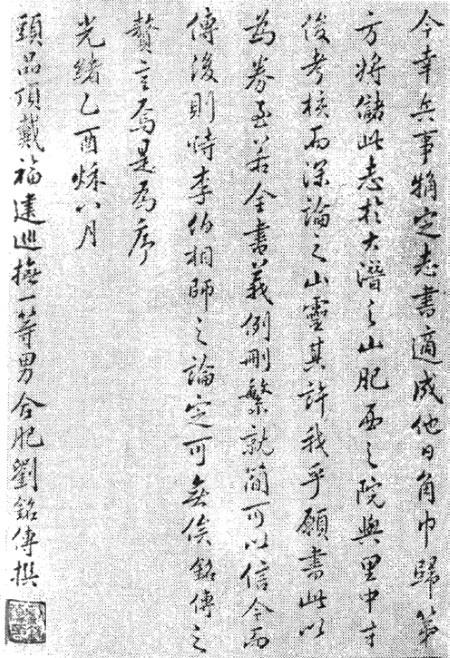 今幸兵事觕定志書適成他日角巾歸第
方將儲此志於大潛之山肥西之院與里中才
俊考核而深論之山靈其許我乎願書此以
為券至若全書義例刪繁就簡可以信今而
傳後則恃李伯相師之論定可無俟銘傳之
贅言焉是為序
光緒乙酉秌八月
頭品頂戴福建巡撫一等男合肥劉銘傳撰